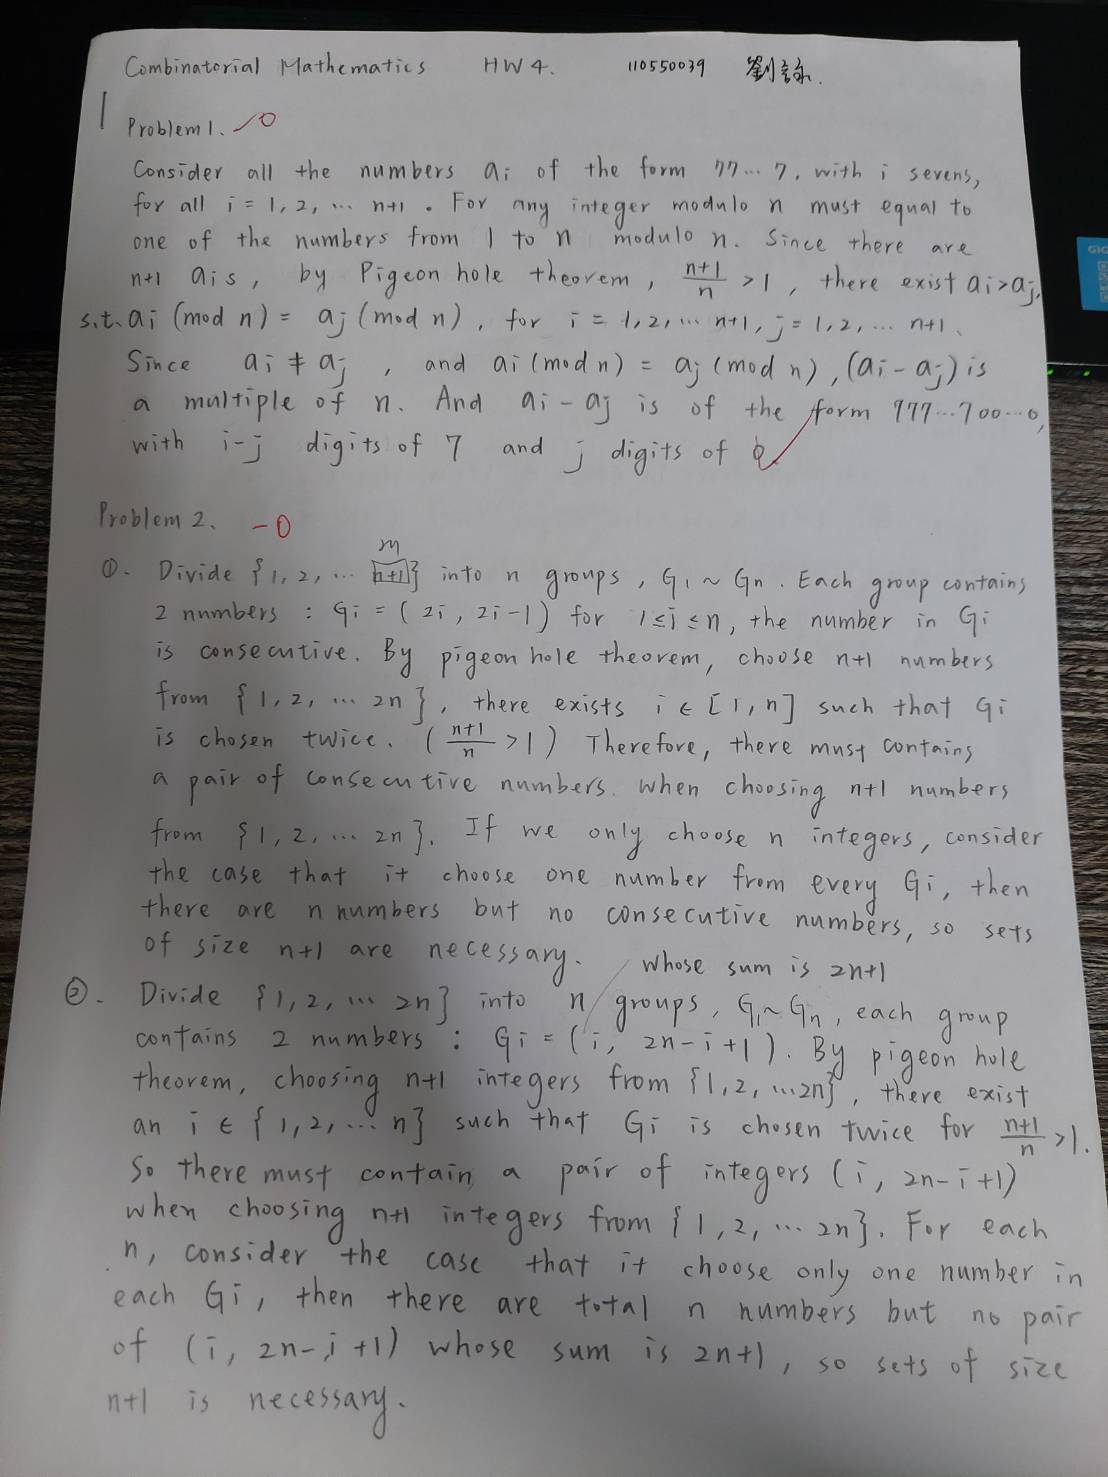 Combinatorial Mathematics HW4. 110550039 劉詠.
Problem 1. -0
Consider all the numbers ai of the form 77...7, with i sevens,
for all i = 1, 2, ... n+1. For any integer modulo n must equal to
one of the numbers from 1 to n modulo n. Since there are
n+1 ais, by Pigeon hole theorem, (n+1)/n > 1, there exist ai > aj,
s.t. ai (mod n) = aj (mod n), for i = 1, 2, ... n+1, j = 1, 2, ... n+1.
Since ai ≠ aj, and ai (mod n) = aj (mod n), (ai - aj) is
a multiple of n. And ai - aj is of the form 777...700...0,
with i-j digits of 7 and j digits of 0
Problem 2. -0
①. Divide {1, 2, ... 2n} into n groups, G1 ~ Gn. Each group contains
2 numbers : Gi = (2i, 2i-1) for 1≤i≤n, the number in Gi
is consecutive. By pigeon hole theorem, choose n+1 numbers
from {1, 2, ... 2n}, there exists i ∈ [1, n] such that Gi
is chosen twice. ((n+1)/n > 1) Therefore, there must contains
a pair of consecutive numbers. when choosing n+1 numbers
from {1, 2, ... 2n}. If we only choose n integers, consider
the case that it choose one number from every Gi, then
there are n numbers but no consecutive numbers, so sets
of size n+1 are necessary.
whose sum is 2n+1
②. Divide {1, 2, ... 2n} into n groups, G1~Gn, each group
contains 2 numbers : Gi = (i, 2n-i+1). By pigeon hole
theorem, choosing n+1 integers from {1, 2, ...2n}, there exist
an i ∈ {1, 2, ... n} such that Gi is chosen twice for (n+1)/n > 1.
So there must contain a pair of integers (i, 2n-i+1)
when choosing n+1 integers from {1, 2, ... 2n}. For each
n, consider the case that it choose only one number in
each Gi, then there are total n numbers but no pair
of (i, 2n-i+1) whose sum is 2n+1, so sets of size
n+1 is necessary.